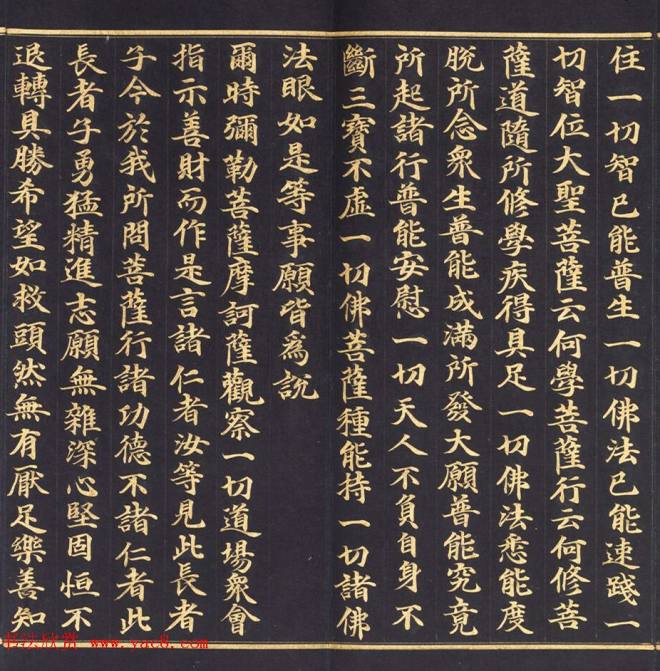 住一切智已能普生一切佛法已能速踐一
切智位大聖菩薩云何學菩薩行云何修菩
薩道隨所修學疾得具足一切佛法悉能度
脫所念衆生普能成滿所發大願普能究竟
所起諸行普能安慰一切天人不負自身不
斷三寶不虛一切佛菩薩種能持一切諸佛
法眼如是等事願皆為說
爾時彌勒菩薩摩訶薩觀察一切道場衆會
指示善財而作是言諸仁者汝等見此長者
子今於我所問菩薩行諸功德不諸仁者此
長者子勇猛精進志願無雜深心堅固恒不
退轉具勝希望如救頭然無有厭足樂善知
书法欣赏 www.yac8.com